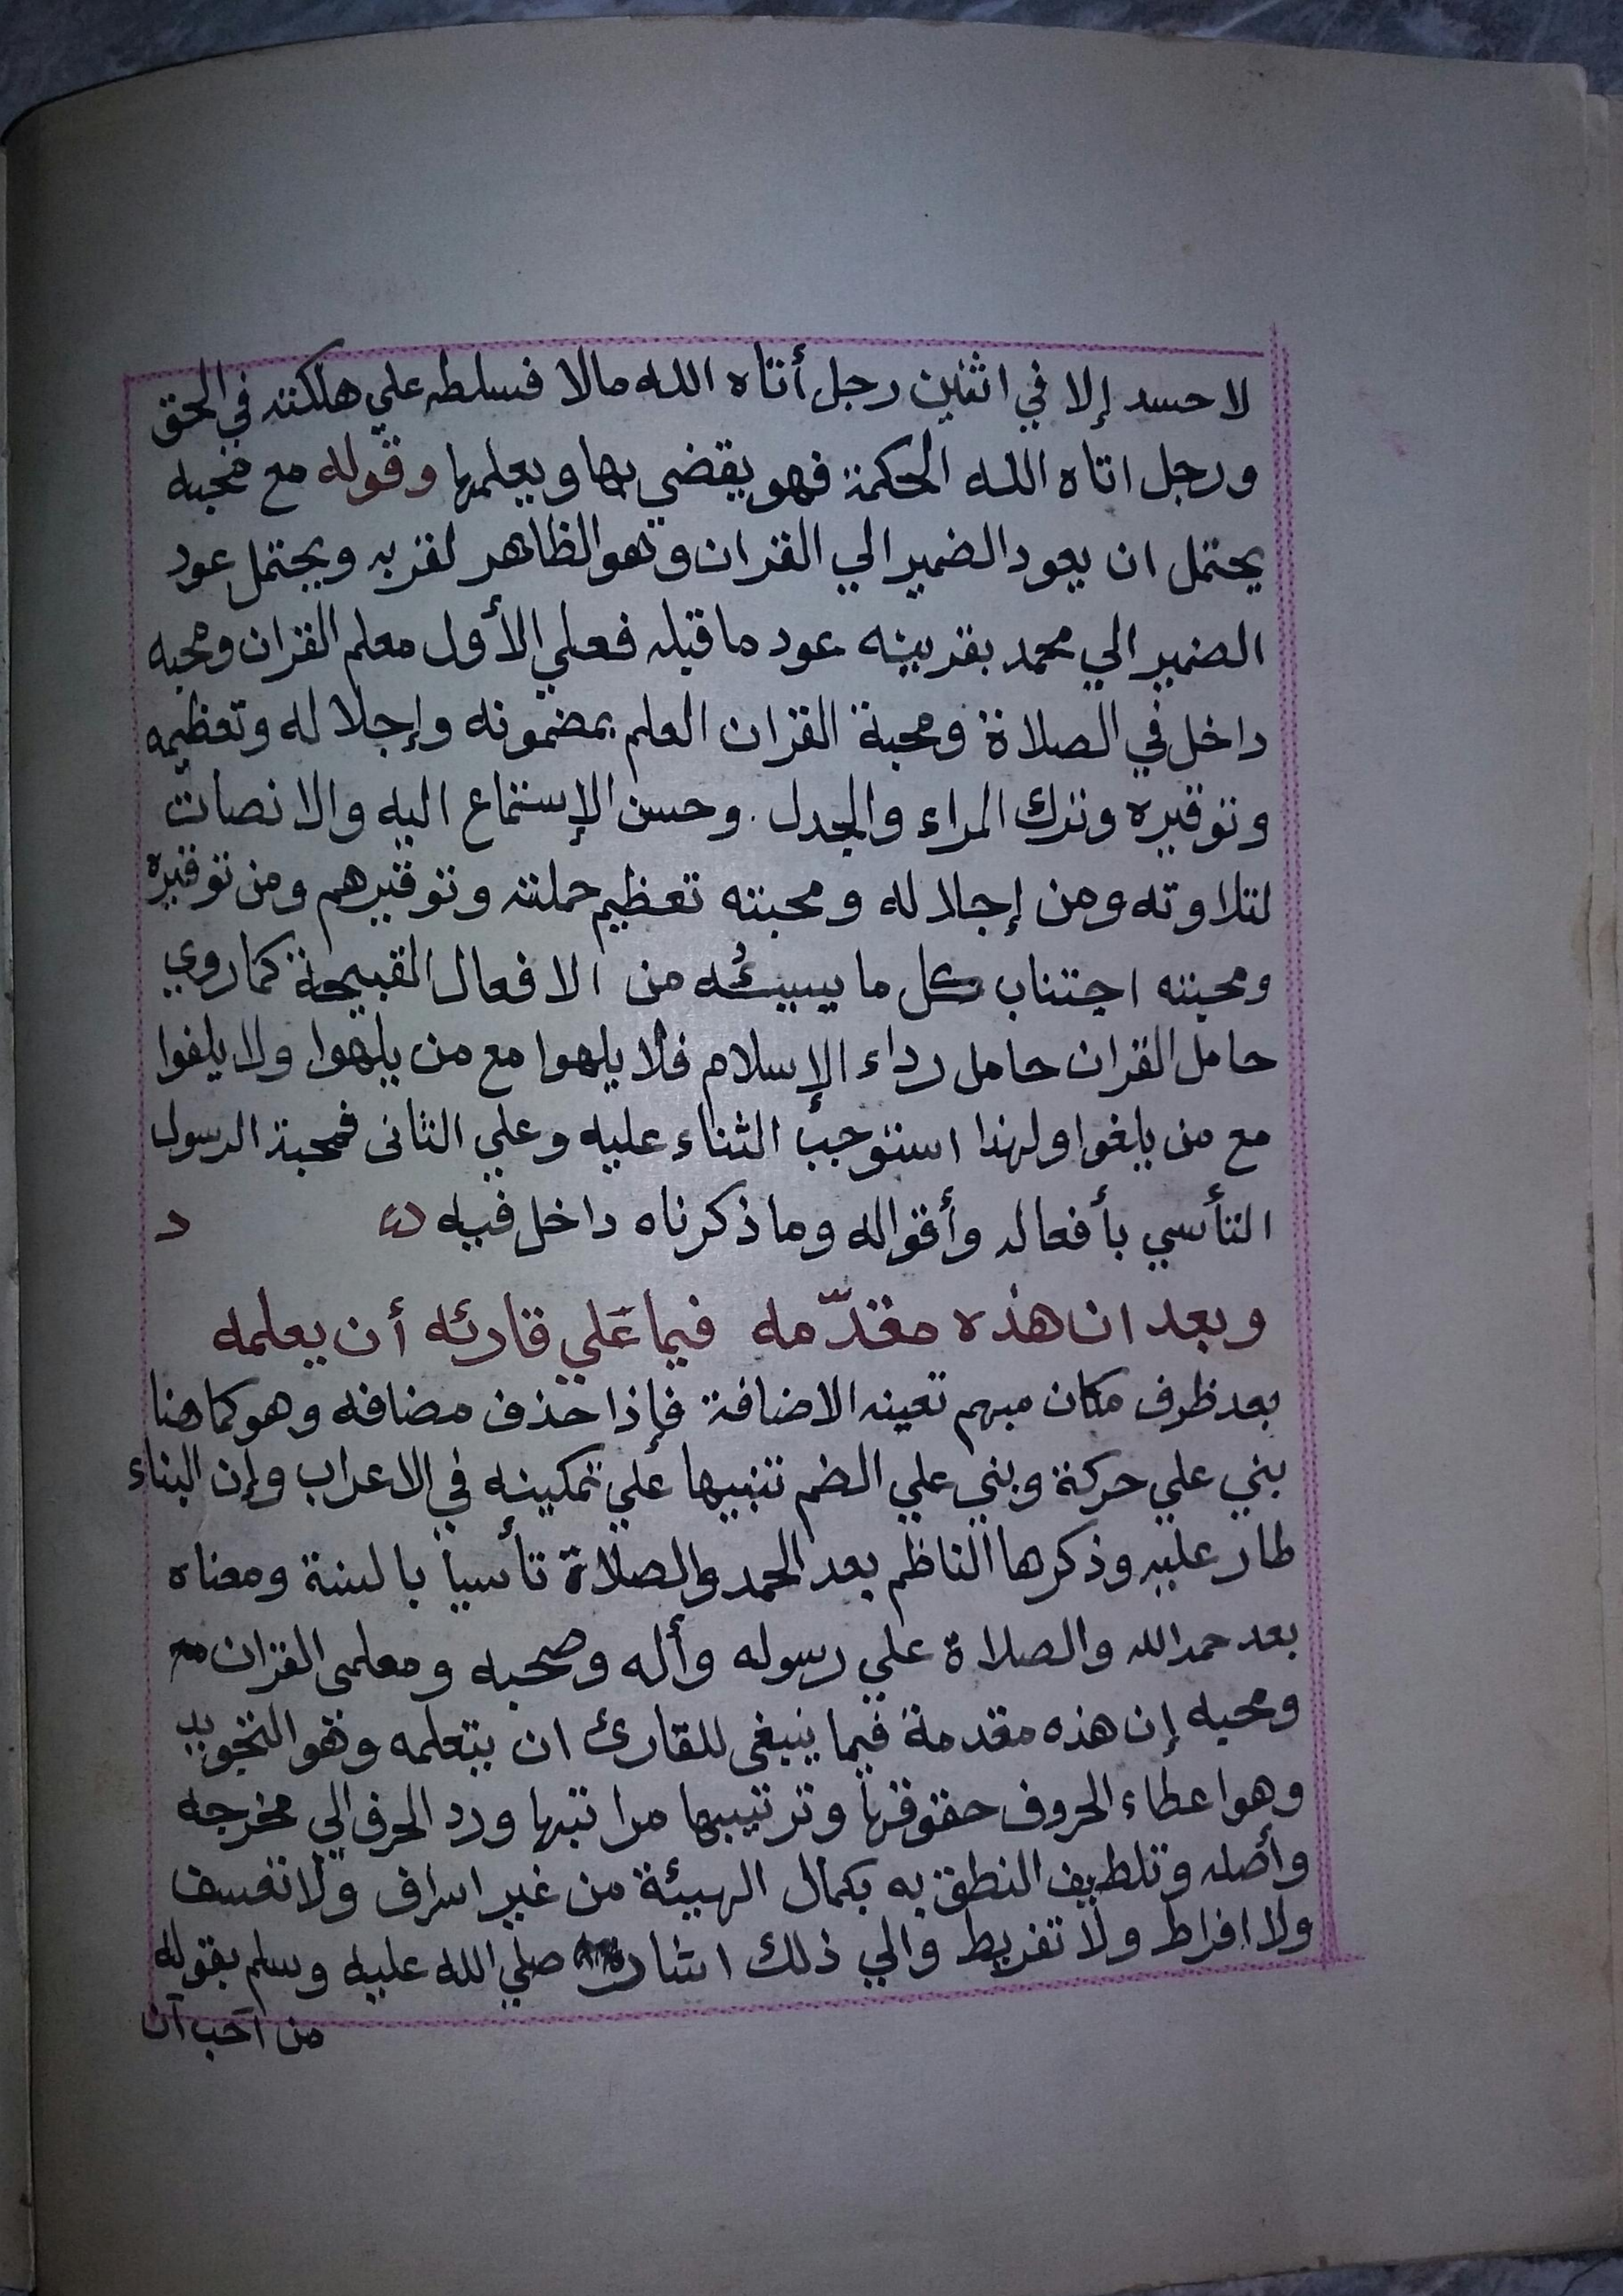 لا حسد إلا في اثنين رجل أتاه الله مالا فسلطه علي هلكته في الحق
ورجل اتاه الله الحكمة فهو يقضي بها ويعلمها وقوله مع محبه
يحتمل ان يعود الضمير الي القران وهو الظاهر لقربه ويحتمل عود
الضمير الي محمد بقرينه عود ما قبله فعلي الأول معلم القران ومحبه
داخل في الصلاة ومحبة القران العلم بمضمونه وإجلاله وتعظيمه
وتوقيره وترك المراء والجدل . وحسن الإستماع اليه والانصات
لتلاوته ومن إجلاله ومحبته تعظيم حملته وتوقيرهم ومن توقيره
ومحبته اجتناب كل ما يسيئه من الافعال القبيحة كما روي
حامل القران حامل رداء الإسلام فلا يلهوا مع من يلهوا ولا يلغوا
مع من يلغوا ولهذا استوجب الثناء عليه وعلي الثانى فمحبة الرسول
التأسي بأفعاله وأقواله وما ذكرناه داخل فيه
وبعد ان هذه مقدّمه فيما عَلي قارئه أن يعلمه
بعد ظرف مكان مبهم تعينه الاضافة فإذا حذف مضافه وهو كما هنا
بني علي حركة وبني علي الضم تنبيها علي تمكينه في الاعراب وإن البناء
طار عليه وذكرها الناظم بعد الحمد والصلاة تأسيا بالسنة ومعناه
بعد حمد الله والصلاة علي رسوله وأله وصحبه ومعلمى القران
ومحبه إن هذه مقدمة فيما ينبغى للقارئ ان يتعلمه وهو التجويد
وهو اعطاء الحروف حقوقها وترتيبها مراتبها ورد الحرف الي مخرجه
وأصله وتلطيف النطق به بكمال الهيئة من غير اسراف ولا تعسف
ولا افراط ولا تفريط والي ذلك اشار صلي الله عليه وسلم بقوله
من آحب آن